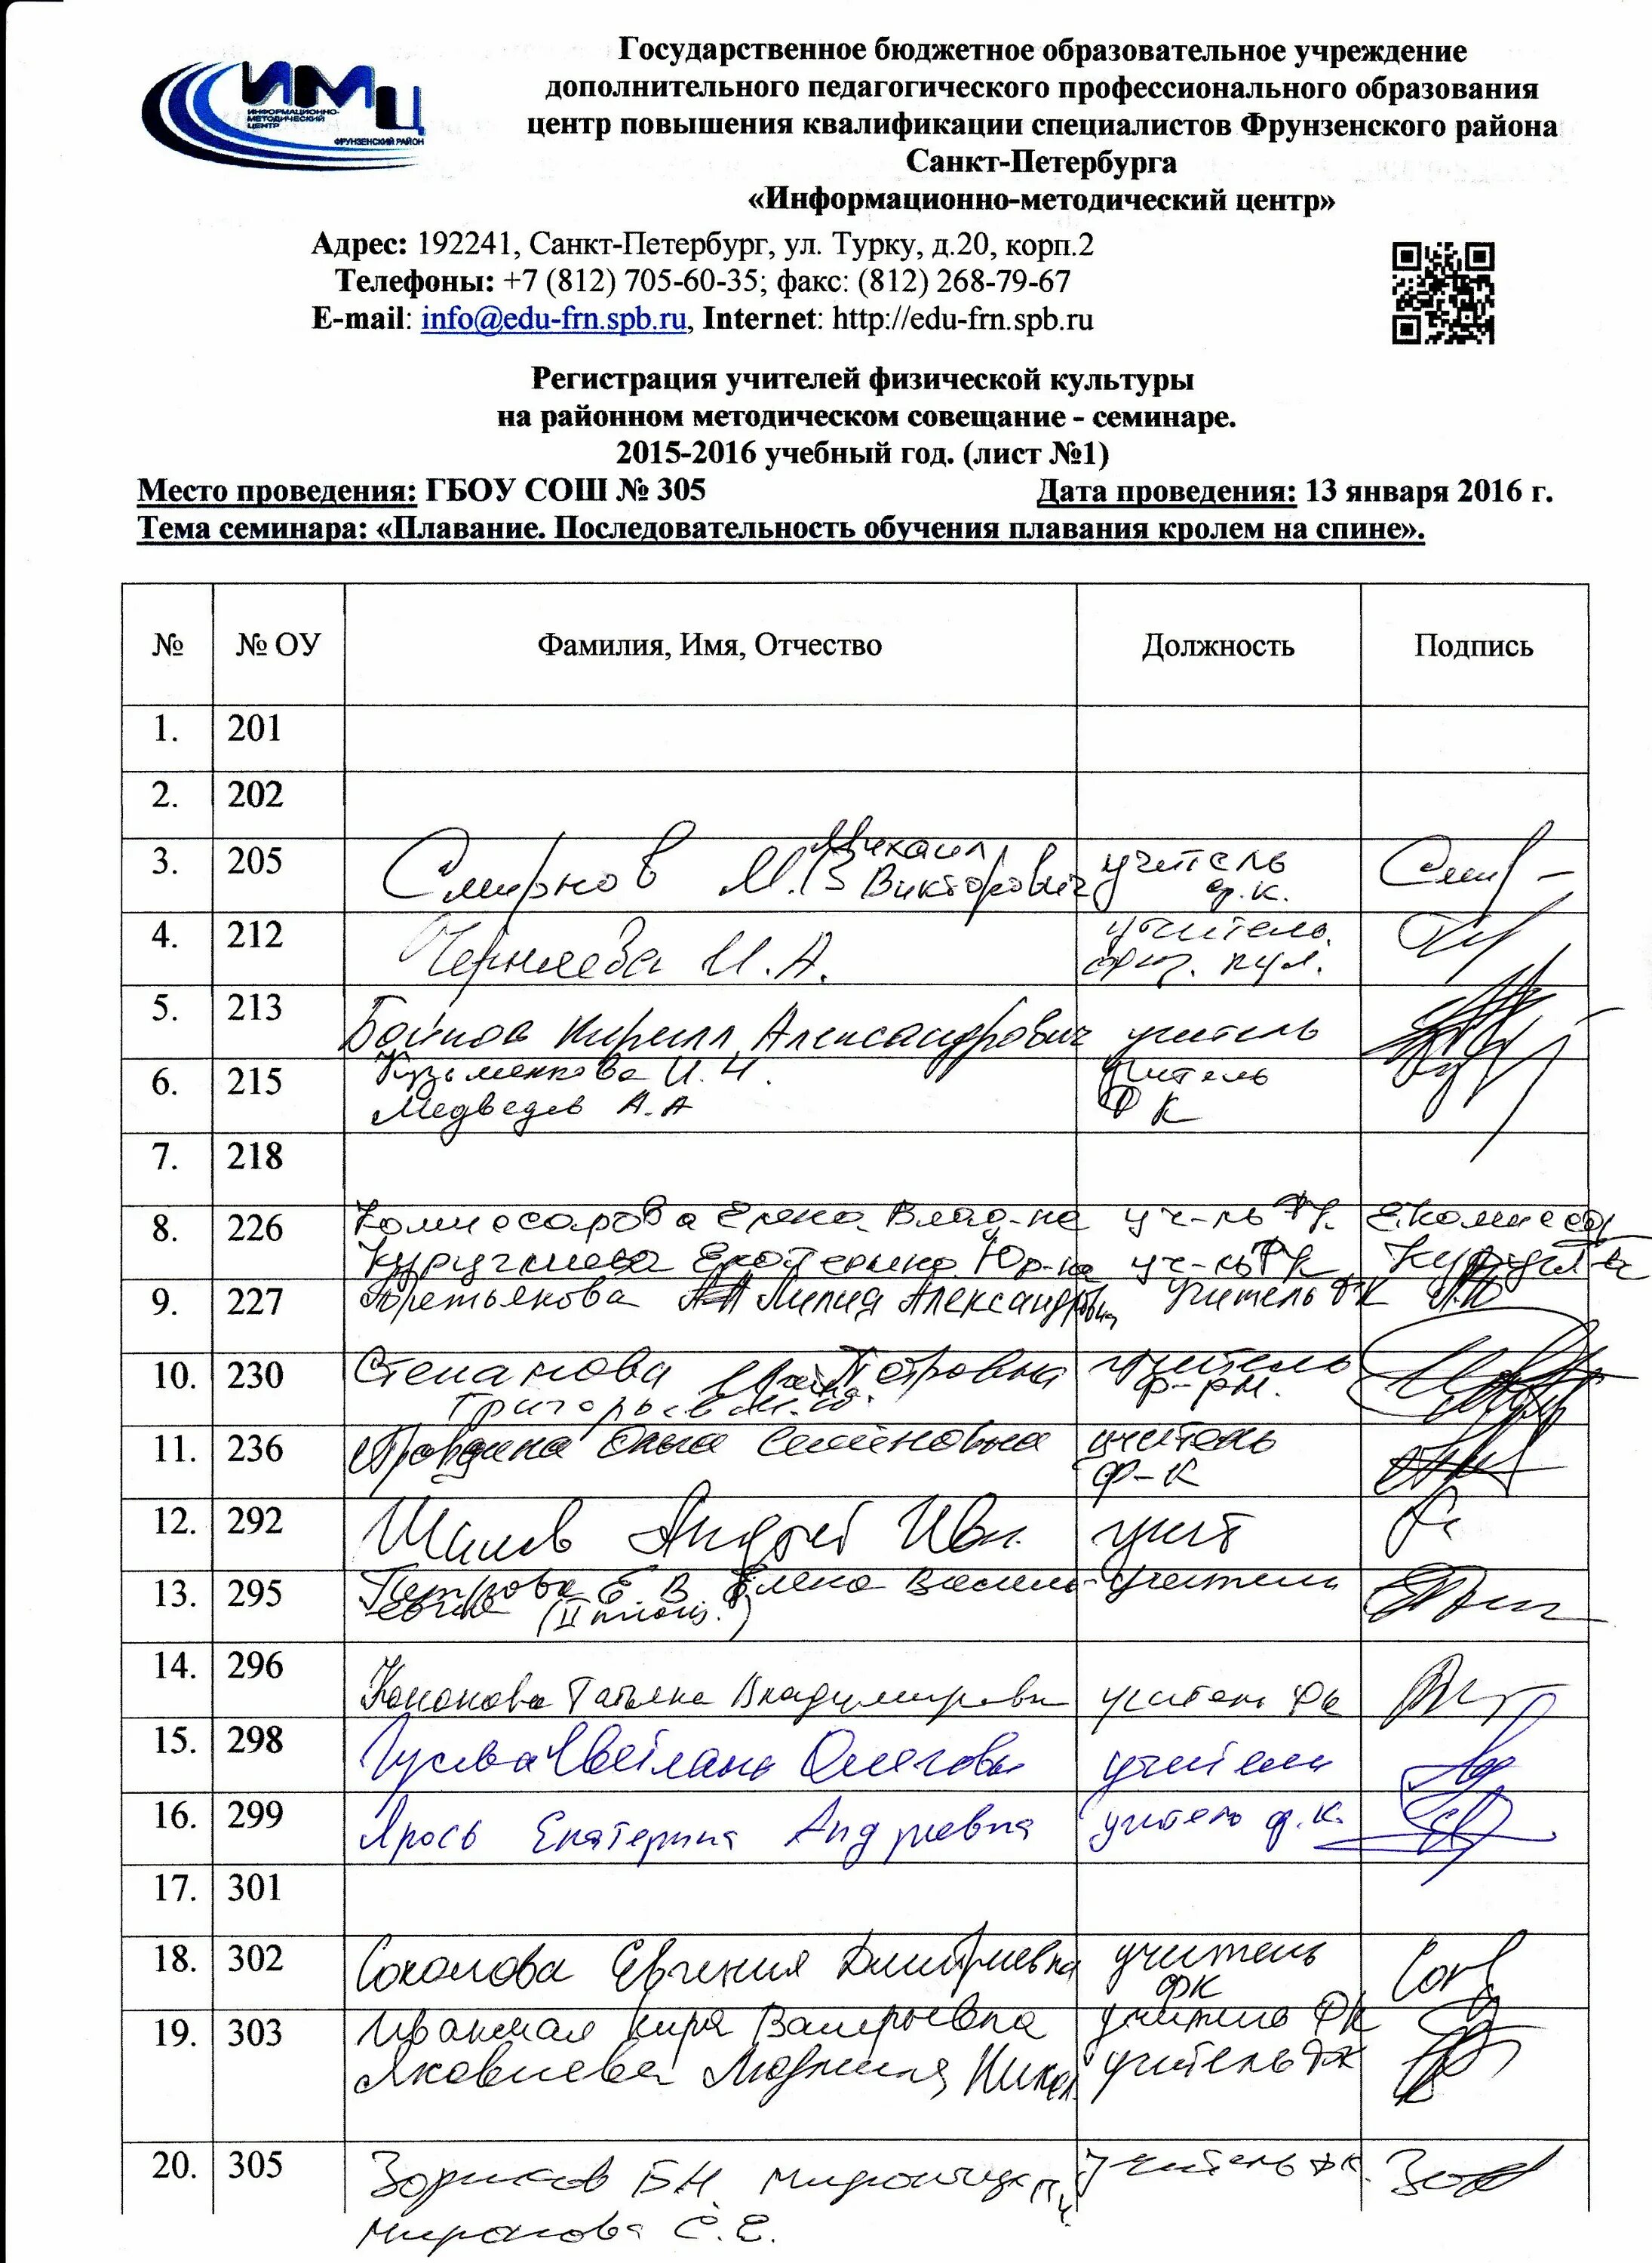 ИМЦ
ИНФОРМАЦИОННО-
МЕТОДИЧЕСКИЙ
ЦЕНТР
ФРУНЗЕНСКИЙ РАЙОН
Государственное бюджетное образовательное учреждение
дополнительного педагогического профессионального образования
центр повышения квалификации специалистов Фрунзенского района
Санкт-Петербурга
«Информационно-методический центр»
Адрес: 192241, Санкт-Петербург, ул. Турку, д.20, корп.2
Телефоны: +7 (812) 705-60-35; факс: (812) 268-79-67
E-mail: info@edu-frn.spb.ru, Internet: http://edu-frn.spb.ru
Регистрация учителей физической культуры
на районном методическом совещание - семинаре.
2015-2016 учебный год. (лист №1)
Место проведения: ГБОУ СОШ № 305 Дата проведения: 13 января 2016 г.
Тема семинара: «Плавание. Последовательность обучения плавания кролем на спине».
№ № ОУ Фамилия, Имя, Отчество Должность Подпись
1. 201
2. 202
3. 205 Смирнов М.В Михаил Викторович учитель ф.к.
4. 212 Черняева И.А. учитель физ. кул.
5. 213 Бойков Кирилл Александрович учитель
6. 215 Кузьменкова И.Н. учитель
Медведев А.А ФК
7. 218
8. 226 Комиссарова Елена Влад-на уч-ль
Екатерина Юр-на уч-ль ФК
9. 227 Третьякова Лилия Александровна Учитель ФК
10. 230 Степанова Петровна учитель
Григорьев М.Ю.
11. 236 Ольга Семёновна учитель
ф-к
12. 292 Шилов Андрей Ив. учит
13. 295 Петрова Е В Елена Василь- учитель
евна
14. 296 Кононова Татьяна Владимировн учитель Фк
15. 298 Гусева Светлана Олеговн учитель
16. 299 Ярось Екатерина Андреевна учитель ф.к.
17. 301
18. 302 Соколова Евгения Дмитриевна учитель
ФК
19. 303 Кира Валерьевна учитель ФК
Яковлева Людмила Никол учитель ФК
20. 305 Зориков Б.Н. учитель ФК.
Миронова С.Е.